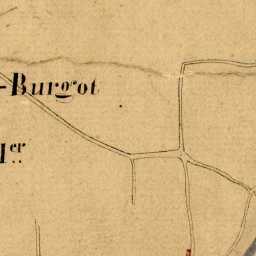 -Burgot
1er